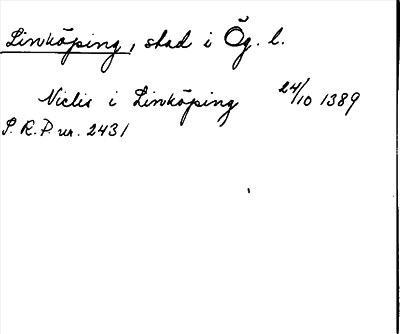 Linköping, stad i Ög. l.
Niclis i Linköping 24/10 1389
S.R.P. nr. 2431